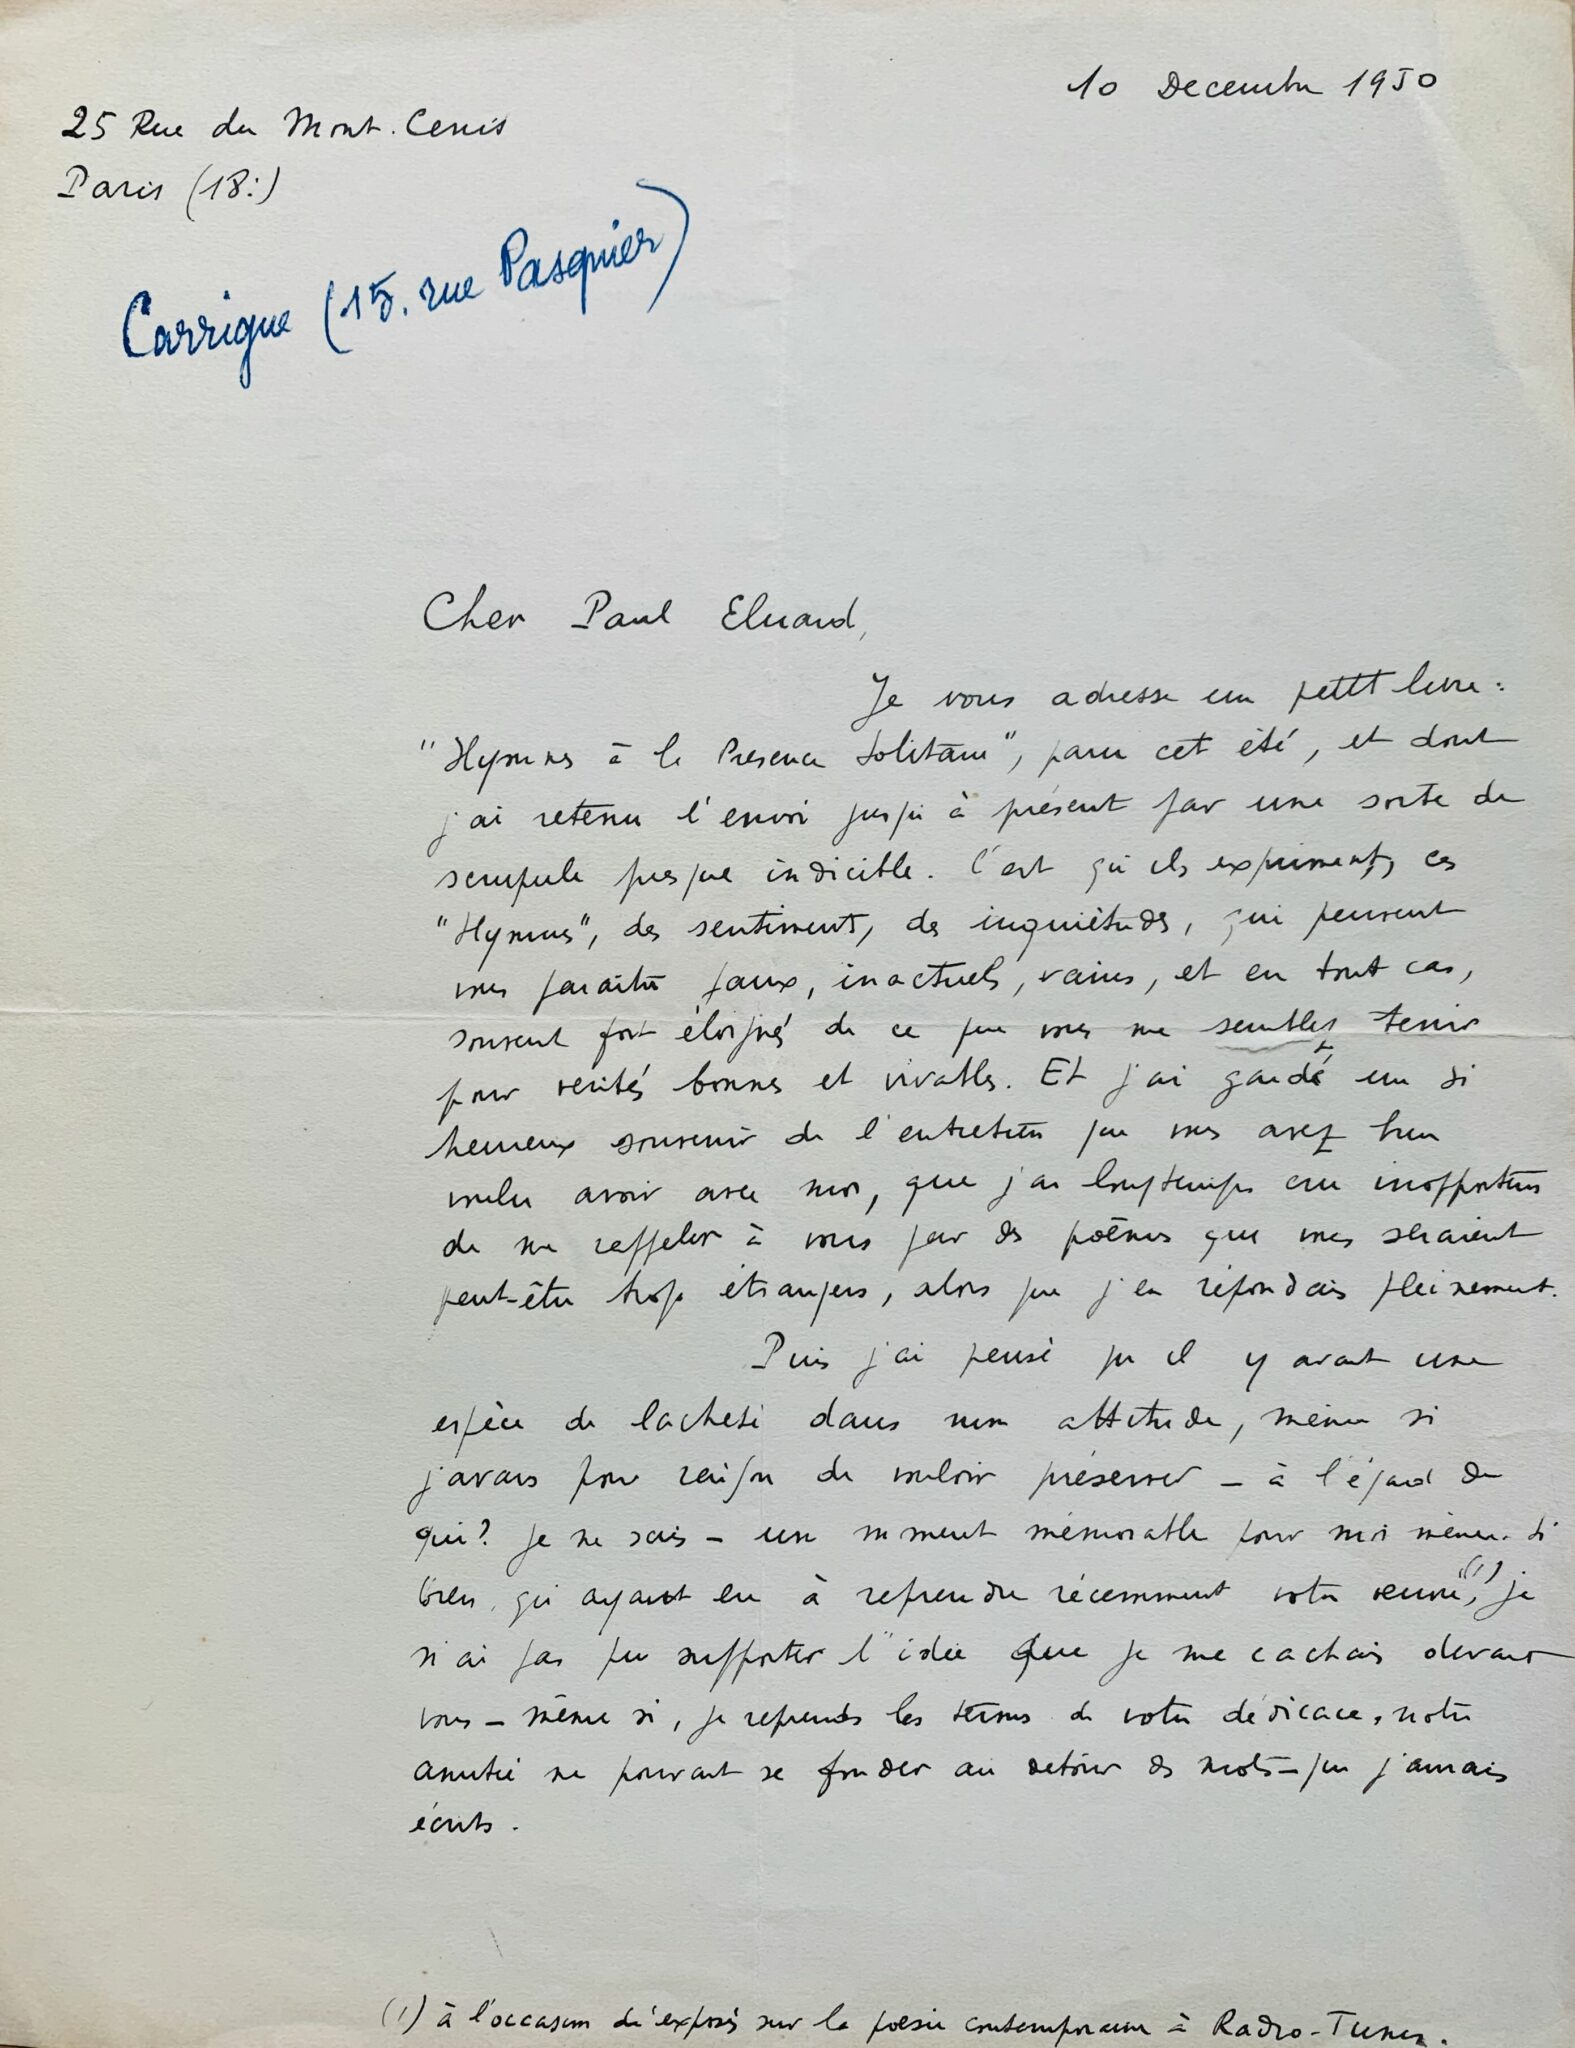 10 Decembre 1950
25 Rue du Mont-Cenis
Paris (18:)
Carrigue (15, rue Pasquier)
Cher Paul Eluard,
Je vous adresse un petit livre :
"Hymnes à la Presence Solitaire", paru cet été, et dont
j'ai retenu l'envoi jusqu'à présent par une sorte de
scrupule presque indicible. C'est qu'ils expriment, ces
"Hymnes", des sentiments, des inquiétudes, qui peuvent
vous paraître faux, inactuels, vains, et en tout cas,
souvent fort éloignés de ce que vous me semblez tenir
pour vérités bonnes et vivables. Et j'ai gardé un si
heureux souvenir de l'entretien que vous avez bien
voulu avoir avec moi, que j'ai longtemps cru inopportun
de me rappeler à vous par des poèmes qui vous seraient
peut-être trop étrangers, alors que j'en répondais pleinement.
Puis j'ai pensé qu'il y avait une
espèce de lacheté dans mon attitude, même si
j'avais pour raison de vouloir préserver – à l'égard de
qui? je ne sais – un moment mémorable pour moi même. Si
bien qu'ayant eu à reprendre récemment votre œuvre (1), je
n'ai pas pu supporter l'idée que je me cachais devant
vous – même si, je reprends les termes de votre dédicace, notre
amitié ne pouvait se fonder au detour de mots – que j'aurais
écrits.
(1) à l'occasion d'exposés sur la poésie contemporaine à Radio-Tunis.